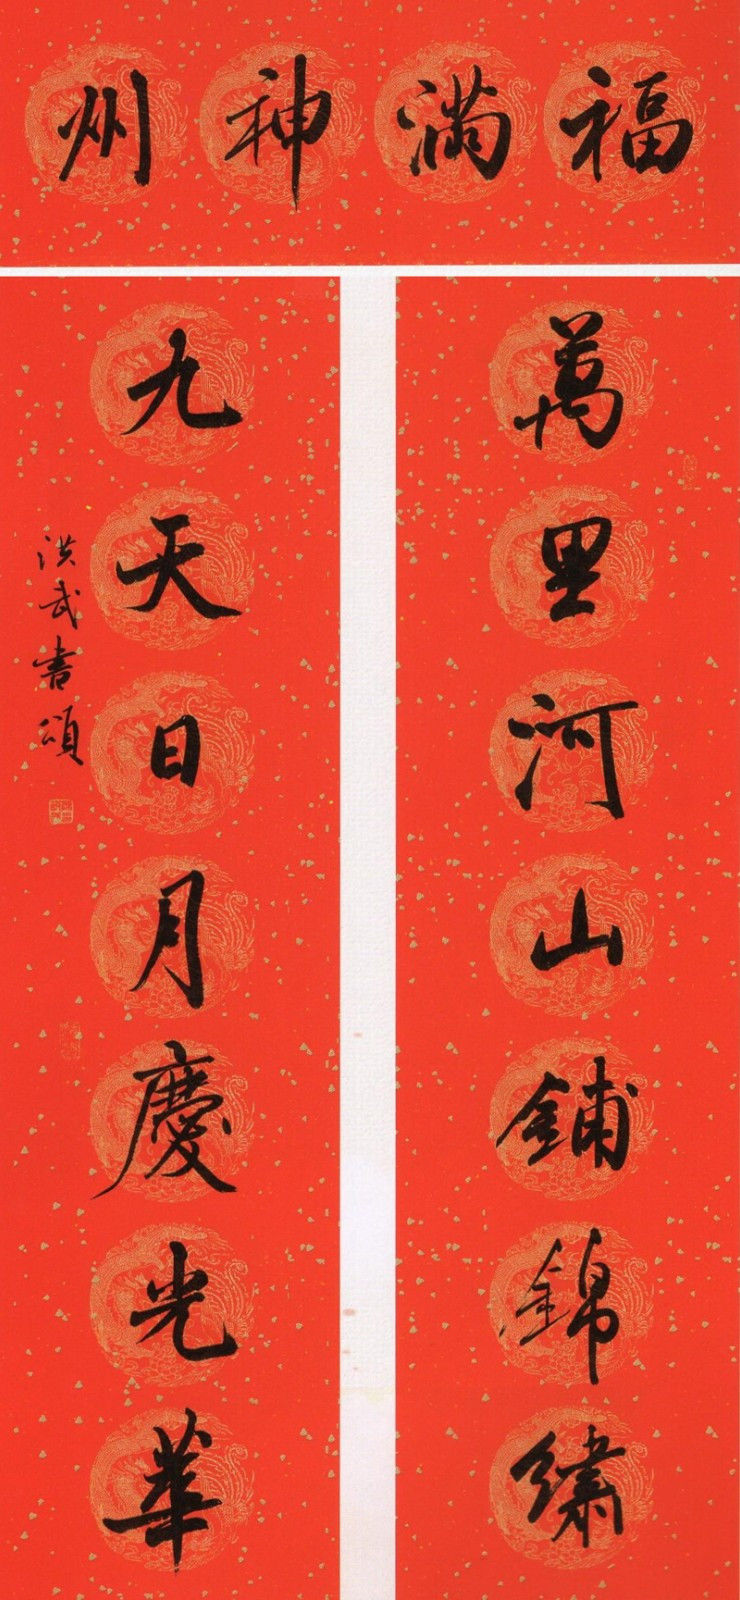 福滿神州
萬里河山鋪錦繡
九天日月慶光華
洪武書頌